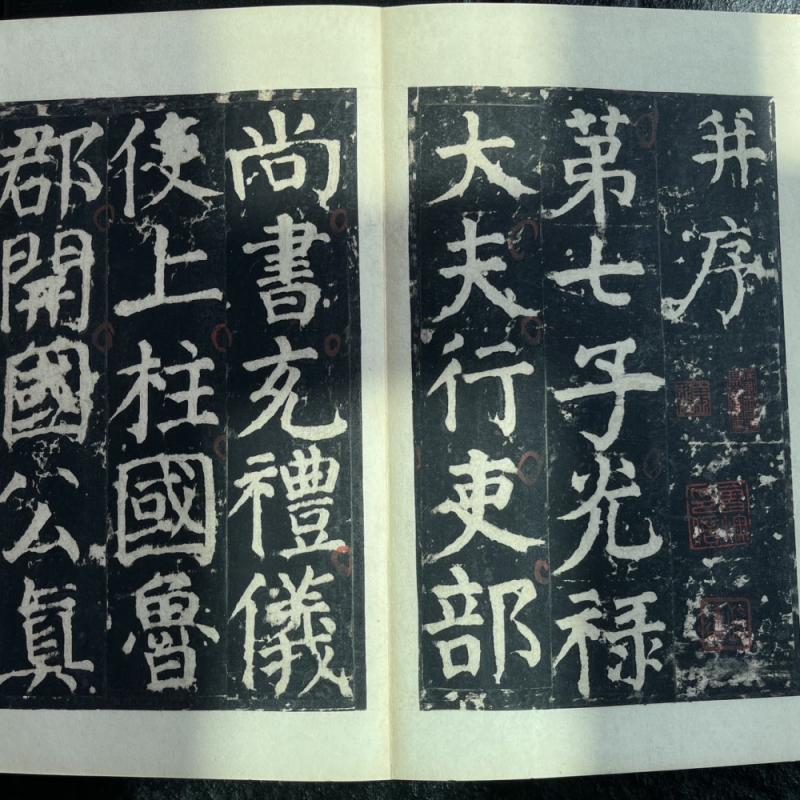 并序
第七子光禄
大夫行吏部
尚書充禮儀
使上柱國魯
郡開國公真